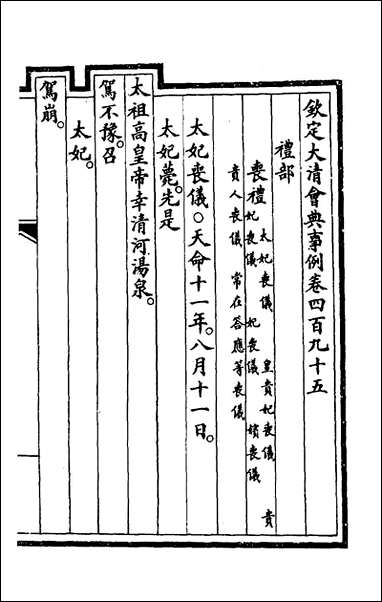 欽定大清會典事例卷四百九十五
禮部
喪禮 太妃喪儀 皇貴妃喪儀 貴
妃喪儀 妃喪儀 嬪喪儀
貴人喪儀 常在答應等喪儀
太妃喪儀○天命十一年。八月十一日。
太妃薨。先是
太祖高皇帝幸清河湯泉。
駕不豫。召
太妃。
駕崩。